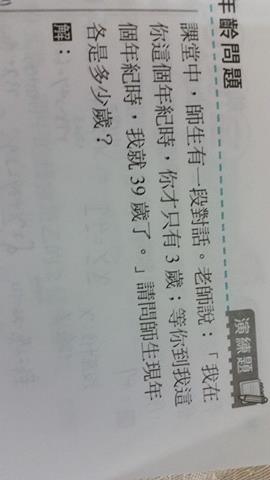 年齡問題
演練題
課堂中，師生有一段對話。老師說：「我在
你這個年紀時，你才只有3歲；等你到我這
個年紀時，我就39歲了。」請問師生現年
各是多少歲？
解：